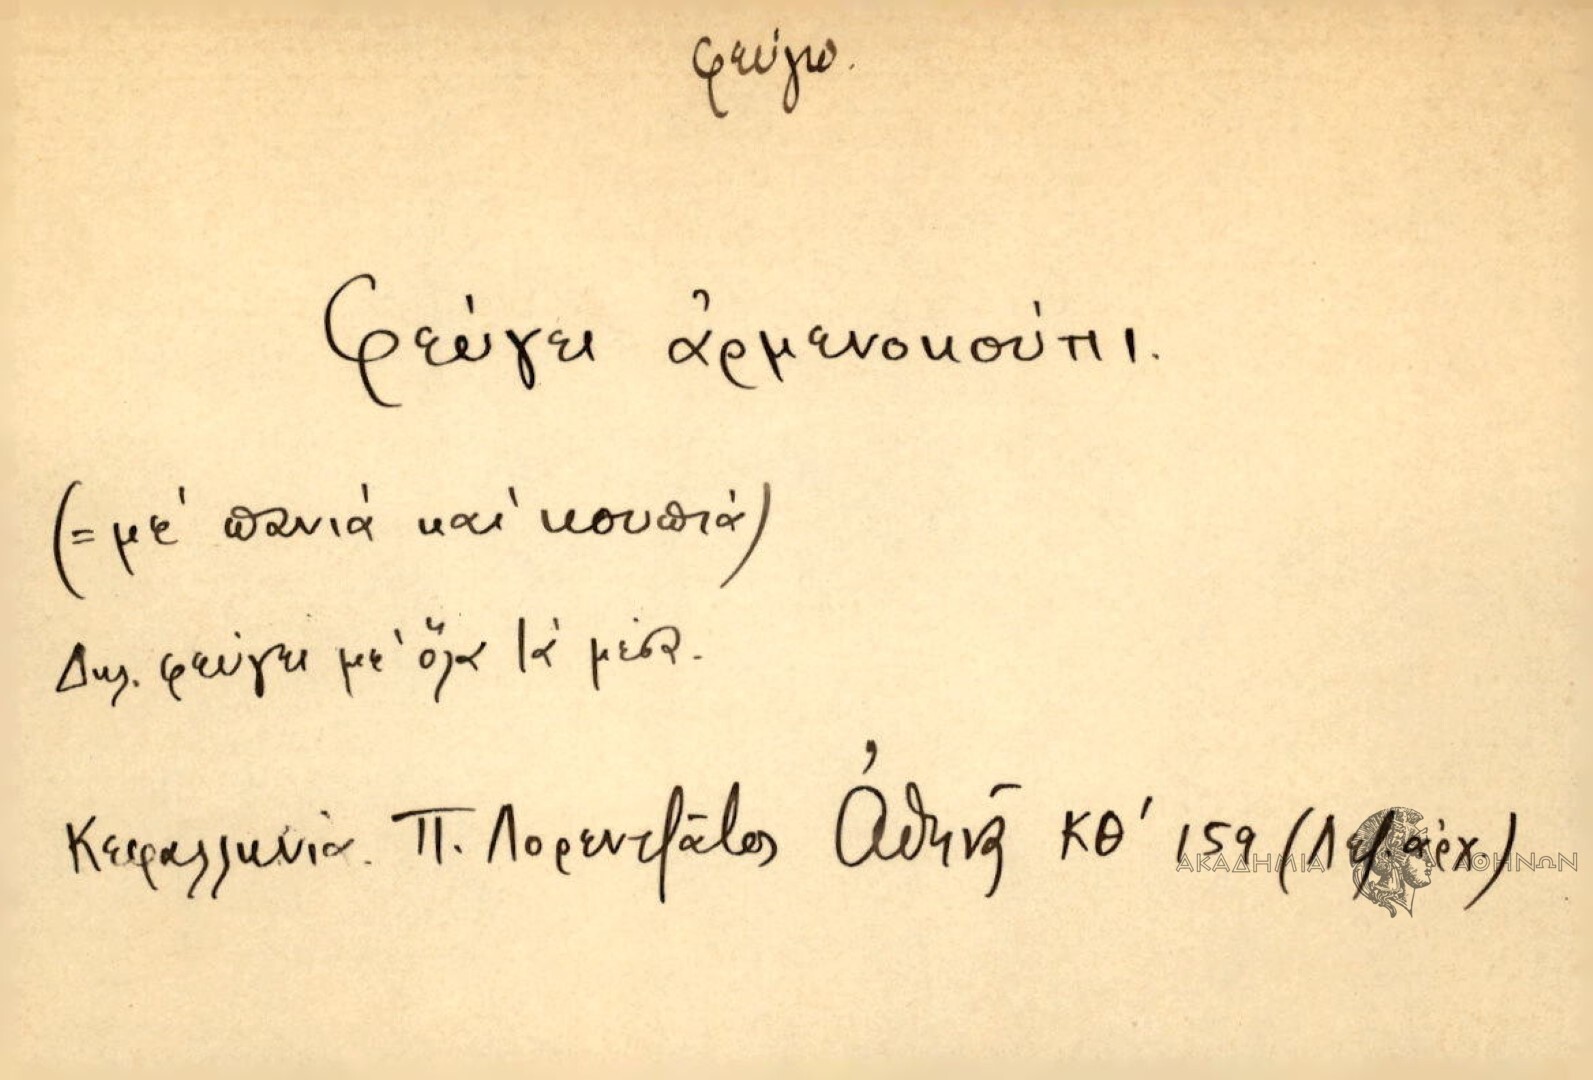 φεύγω.
Φεύγει ἀρμενοκούπι.
(= μέ πανιά καί κουπιά)
Δηλ. φεύγει μέ ὅλα τά μέσα.
Κεφαλληνία. Π. Λορεντζᾶτος Ἀθηνᾶ ΚΘ' 159 (Λεξ. ἀρχ.)
ΑΚΑΔΗΜΙΑ ΑΘΗΝΩΝ